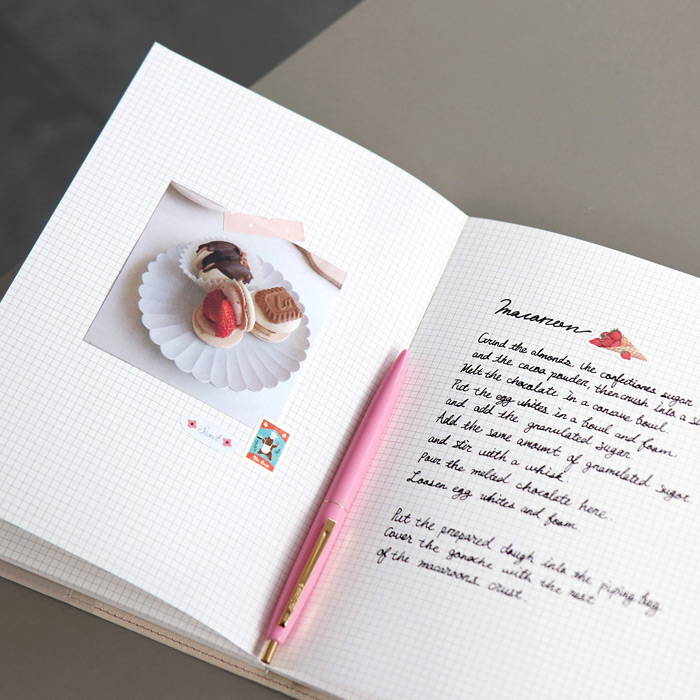 Sweet
Macaroon
Grind the almonds. the confectioners sugar
and the cacoa powder, then crush into a
Melt the chocolate in a concave bowl
Put the egg whites in a bowl and foam
and add the granulated sugar
Add the same amount of granulated sugar
and stir with a whisk.
Pour the melted chocolate here.
Loosen egg whites and foam
Put the prepared dough into the piping bag
Cover the ganache with the rest
of the macaroons crust.